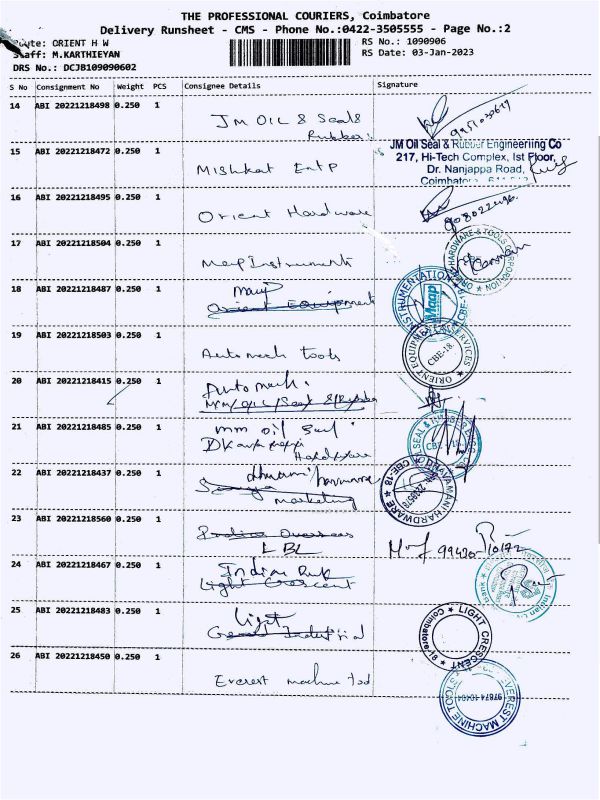 THE PROFESSIONAL COURIERS, Coimbatore
Delivery Runsheet - CMS - Phone No.:0422-3505555 - Page No.:2
Route: ORIENT H W RS No.: 1090906
Staff: M.KARTHIEYAN RS Date: 03-Jan-2023
DRS No.: DCJB109090602
S No Consignment No Weight PCS Consignee Details Signature
14 ABI 20221218498 0.250 1
JM OIL & Seals
Rubber
JM Oil Seal & Rubber Engineeriing Co
15 ABI 20221218472 0.250 1
217, Hi-Tech Complex, Ist Floor,
Mishkat Entp
Dr. Nanjappa Road,
Coimbatore
16 ABI 20221218495 0.250 1
Orient Hardware
17 ABI 20221218504 0.250 1
HARDWARE & TOOLS CORPORATION
Map Instruments
18 ABI 20221218487 0.250 1
Maap
INSTRUMENTATION
Maap
Orient Equipments
19 ABI 20221218503 0.250 1
ORIENT EQUIPMENT SERVICES
CBE-18.
Automech tools
20 ABI 20221218415 0.250 1
Automech.
MM/OIL/Seal &/Rubber
21 ABI 20221218485 0.250 1
mm oil seal
Hardware
22 ABI 20221218437 0.250 1
marketing
CBE-18 DHAVAMANI HARDWARE
23 ABI 20221218560 0.250 1
Overseas
LBL
99420 10172
24 ABI 20221218467 0.250 1
Indian Rub
Light Crescent
25 ABI 20221218483 0.250 1
Light
General Industrial
LIGHT CRESCENT
Coimbatore-18
26 ABI 20221218450 0.250 1
Everest machine tool
EVEREST MACHINE TOOLS